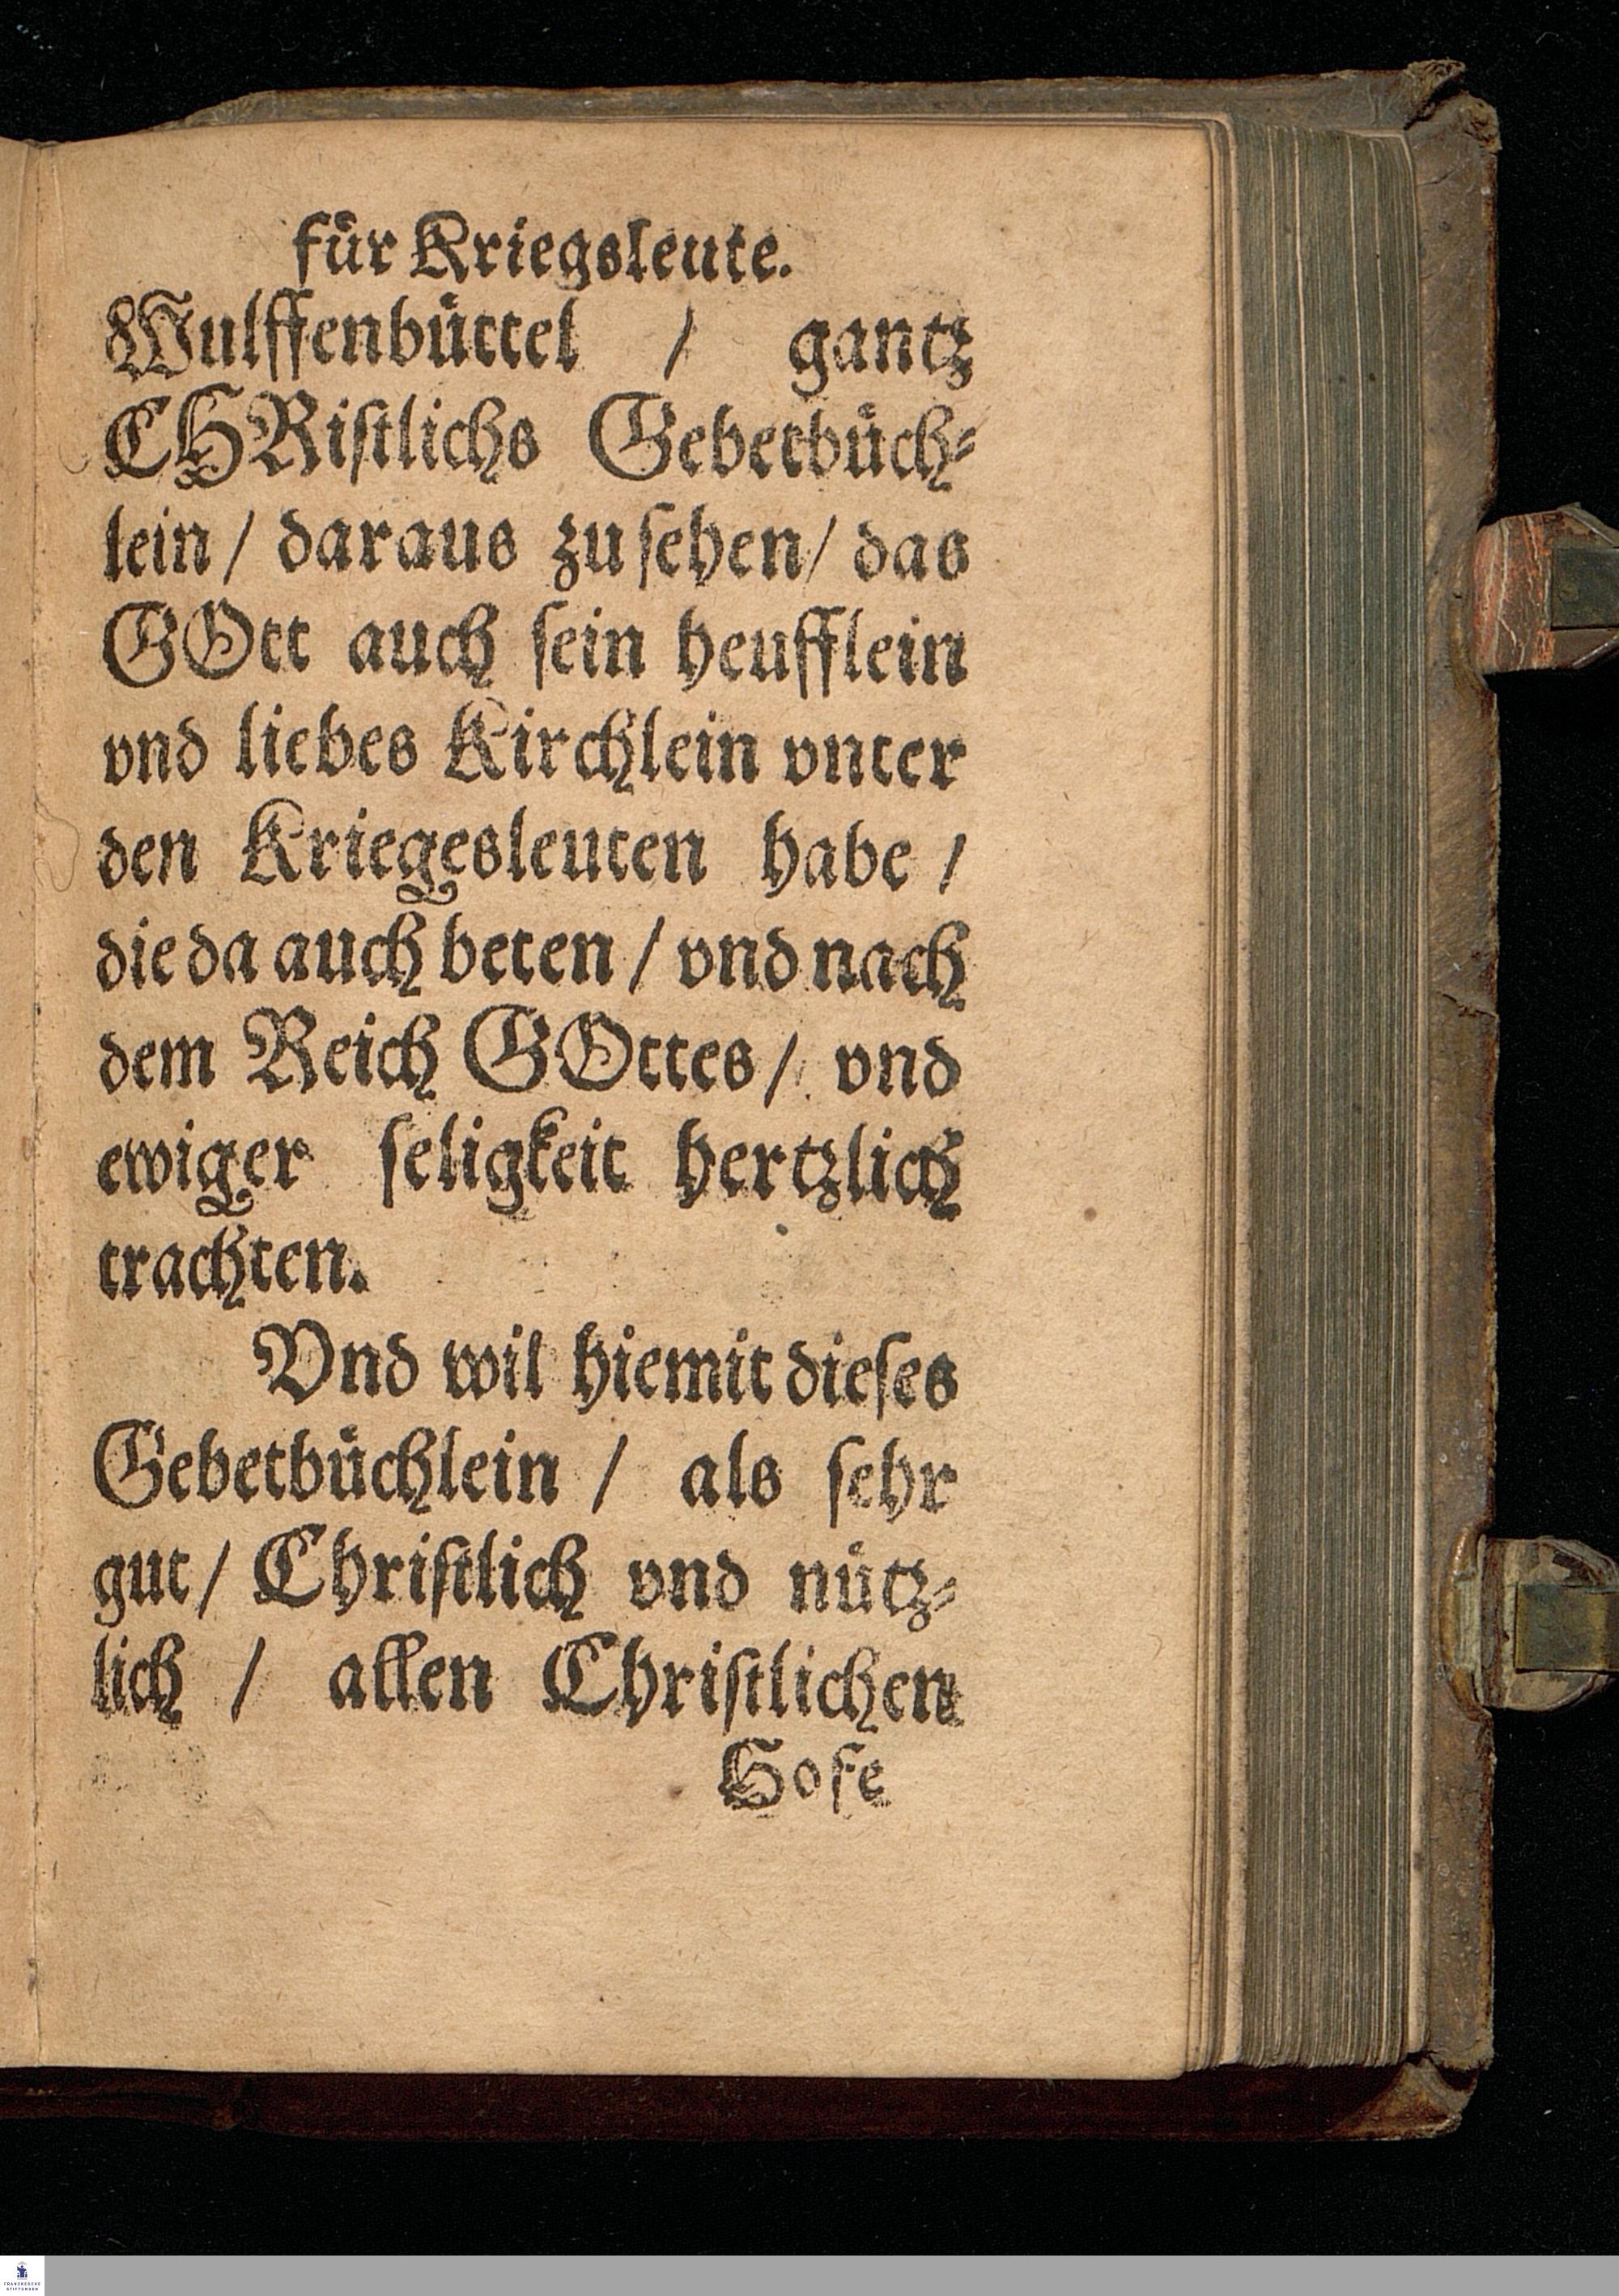 fuͤr Kriegsleute.
Wulffenbuͤttel / gantz
CHRiſtlichs Gebetbuͤch⸗
lein / daraus zu ſehen / das
GOtt auch ſein heufflein
vnd liebes Kirchlein vnter
den Kriegesleuten habe /
die da auch beten / vnd nach
dem Reich GOttes / vnd
ewiger ſeligkeit hertzlich
trachten.
Vnd wil hiemit dieſes
Gebetbuͤchlein / als ſehr
gut / Chriſtlich vnd nuͤtz⸗
lich / allen Chriſtlichen
Hofe
FRANCKESCHE
STIFTUNGEN